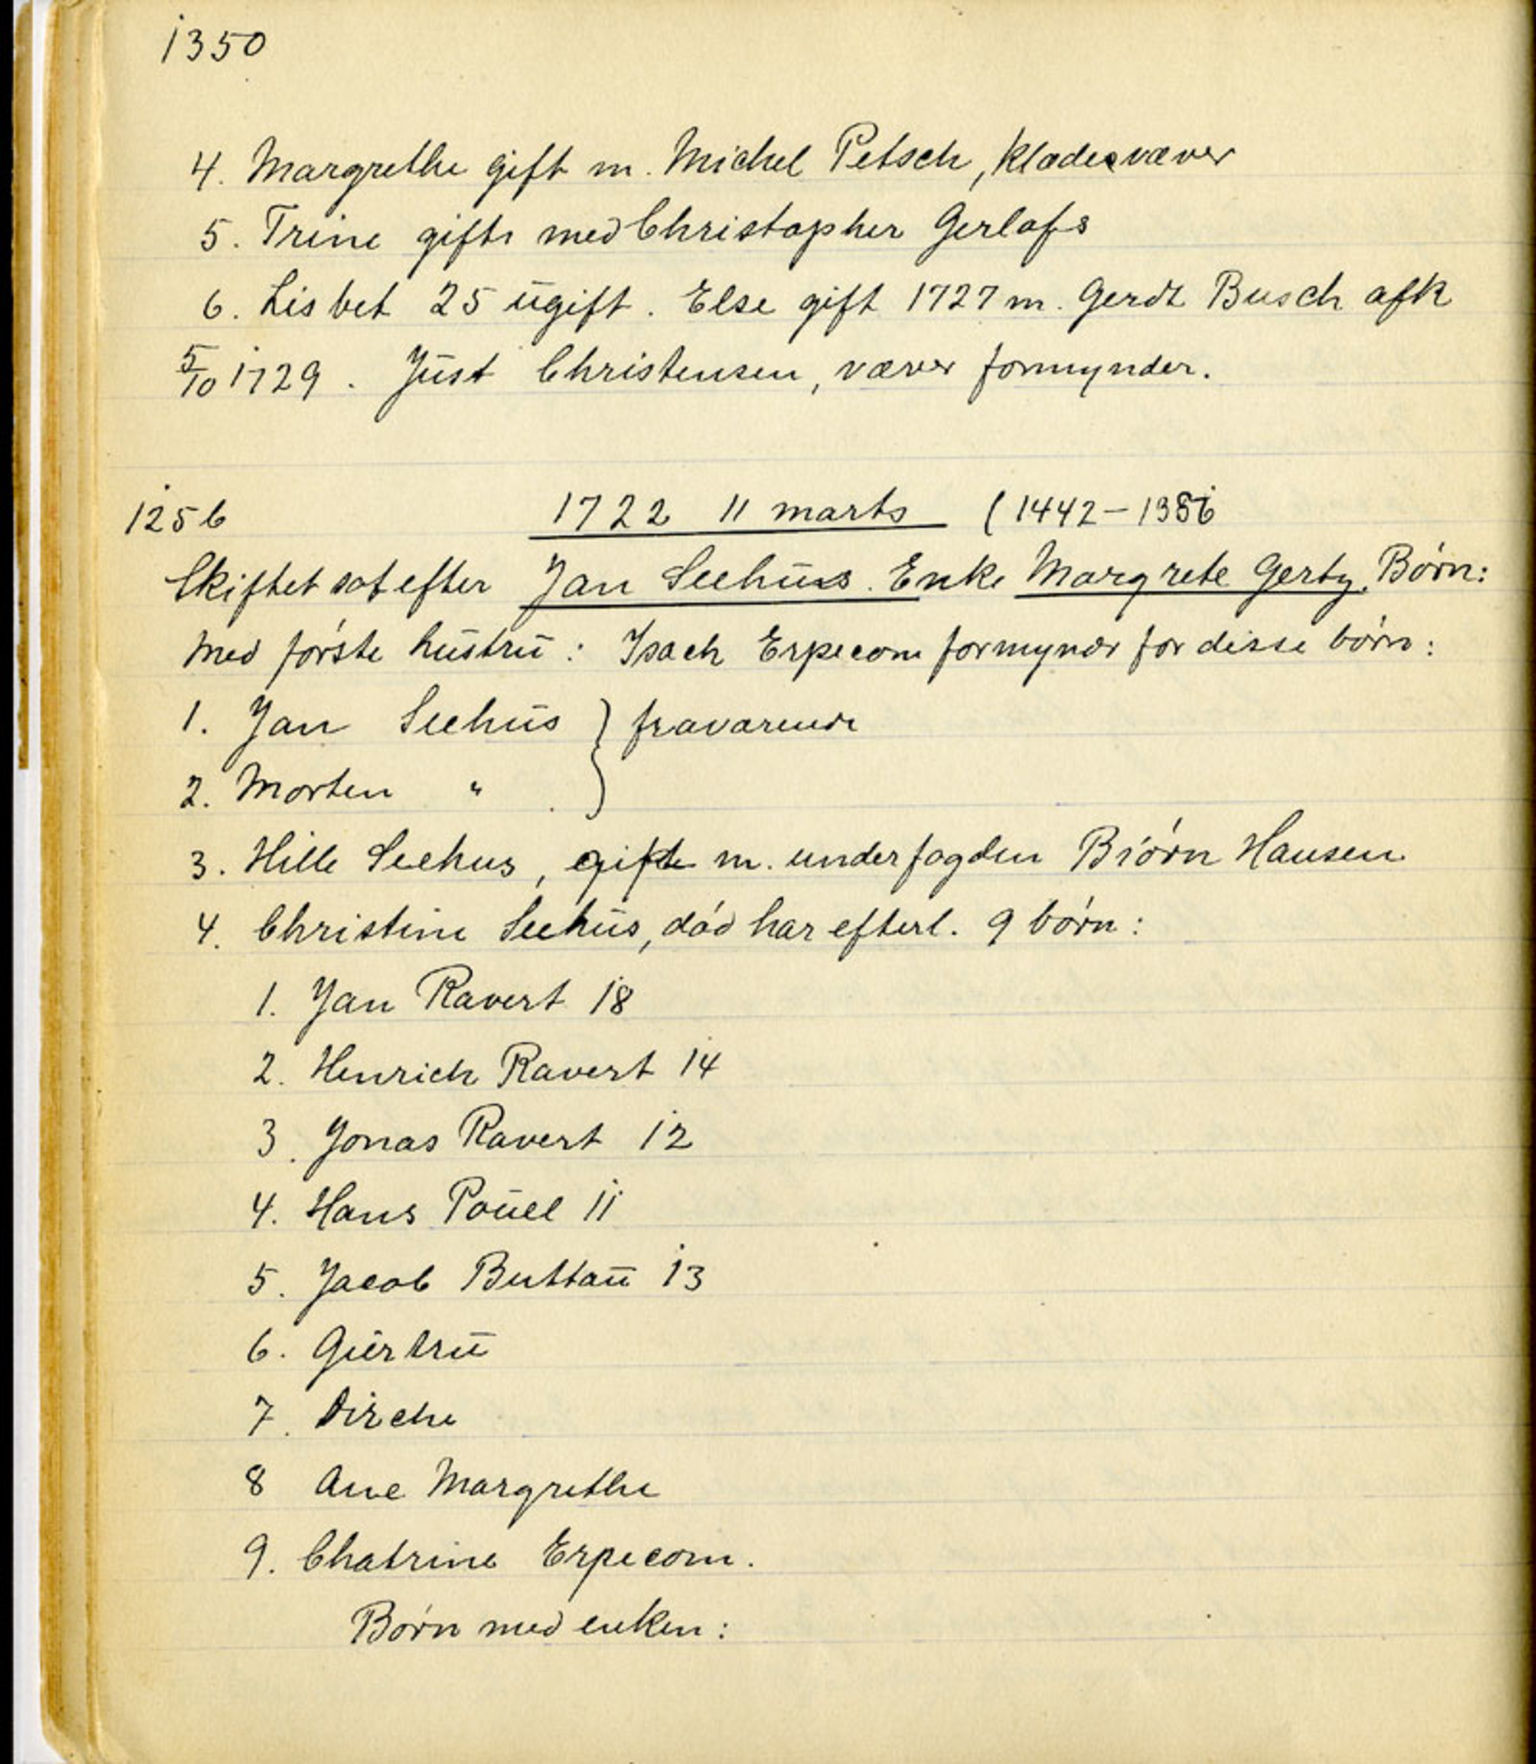 1350
4. Margrethe gift m. Michel Petsch, klædesvæver
5. Trine gift med Christopher Gerlofs
6. Lisbet 25 ugift. Else gift 1727 m. Gerdt Busch afk
5/10 1729. Just Christensen, væver formynder.
1256 1722 11 marts (1442-1356
Skiftet sat efter Jan Seehuus. Enke Margrete Gertz. Børn:
Med første hustru: Isach Erpecom formyndr for disse børn:
1. Jan Seehus } fraværende
2. Morten " }
3. Hille Seehus, gift m. underfogden Biørn Hansen
4. Christine Seehus, død har efterl. 9 børn:
1. Jan Ravert 18
2. Henrich Ravert 14
3. Jonas Ravert 12
4. Hans Pouel 11
5. Jacob Buttau 13
6. Giertru
7. Dirche
8 Ane Margrethe
9. Chatrine Erpecom.
Børn med enken: